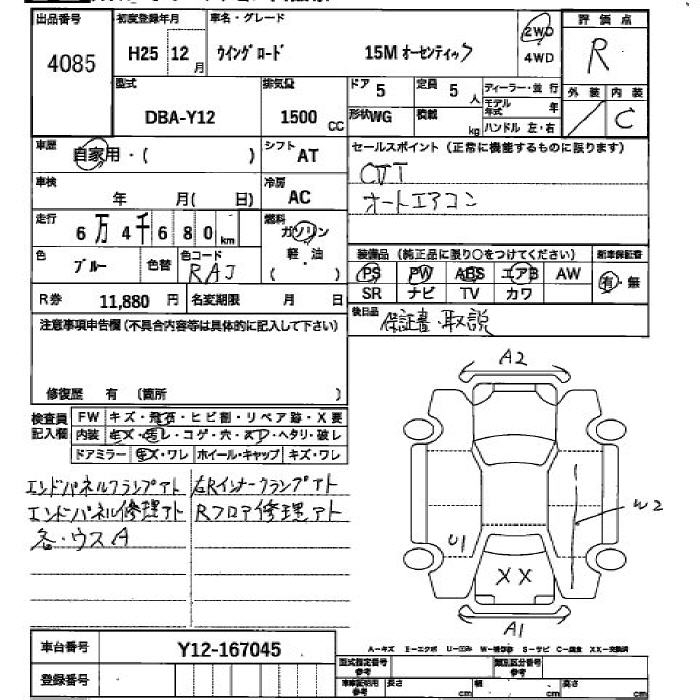 出品番号 初度登録年月 車名・グレード 評価点
4085 H25 12月 ウイングロード 15M オーセンティック 2WD 4WD R
型式 排気量 ドア 5 定員 5人 ディーラー・並行 外装 内装
DBA-Y12 1500 CC 形状 WG 積載 kg モデル年式 年 C
ハンドル 左・右
車歴 自家用・( ) シフト AT セールスポイント (正常に機能するものに限ります)
CVT
車検 年 月( 日) 冷房 AC オートエアコン
走行 6万4千680km 燃料 ガソリン 軽・油 ( )
色 ブルー 色替 色コード RAJ
装備品 (純正品に限り○をつけてください) 新車保証書
PS PW ABS エアB AW 有・無
SR ナビ TV カワ
R券 11,880 円 名変期限 月 日
後日品 保証書・取説
注意事項申告欄 (不具合内容等は具体的に記入して下さい)
修復歴 有 (箇所 )
検査員記入欄 FW キズ・飛石・ヒビ割・リペア跡・X要
内装 キズ・汚レ・コゲ・穴・スレ・ヘタリ・破レ
ドアミラー キズ・ワレ ホイール・キャップ キズ・ワレ
エンドパネルクランプアト 右Rインナークランプアト
エンドパネル修理アト Rフロア修理アト
各・ウスA
A2
W2
U1
XX
A1
車台番号 Y12-167045
登録番号
A-キズ E-エクボ U-凹み W-補修跡 S-サビ C-腐食 XX-交換済
型式指定番号 参考 類別区分番号 参考
車庫証明用 参考 長さ cm 幅 cm 高さ cm